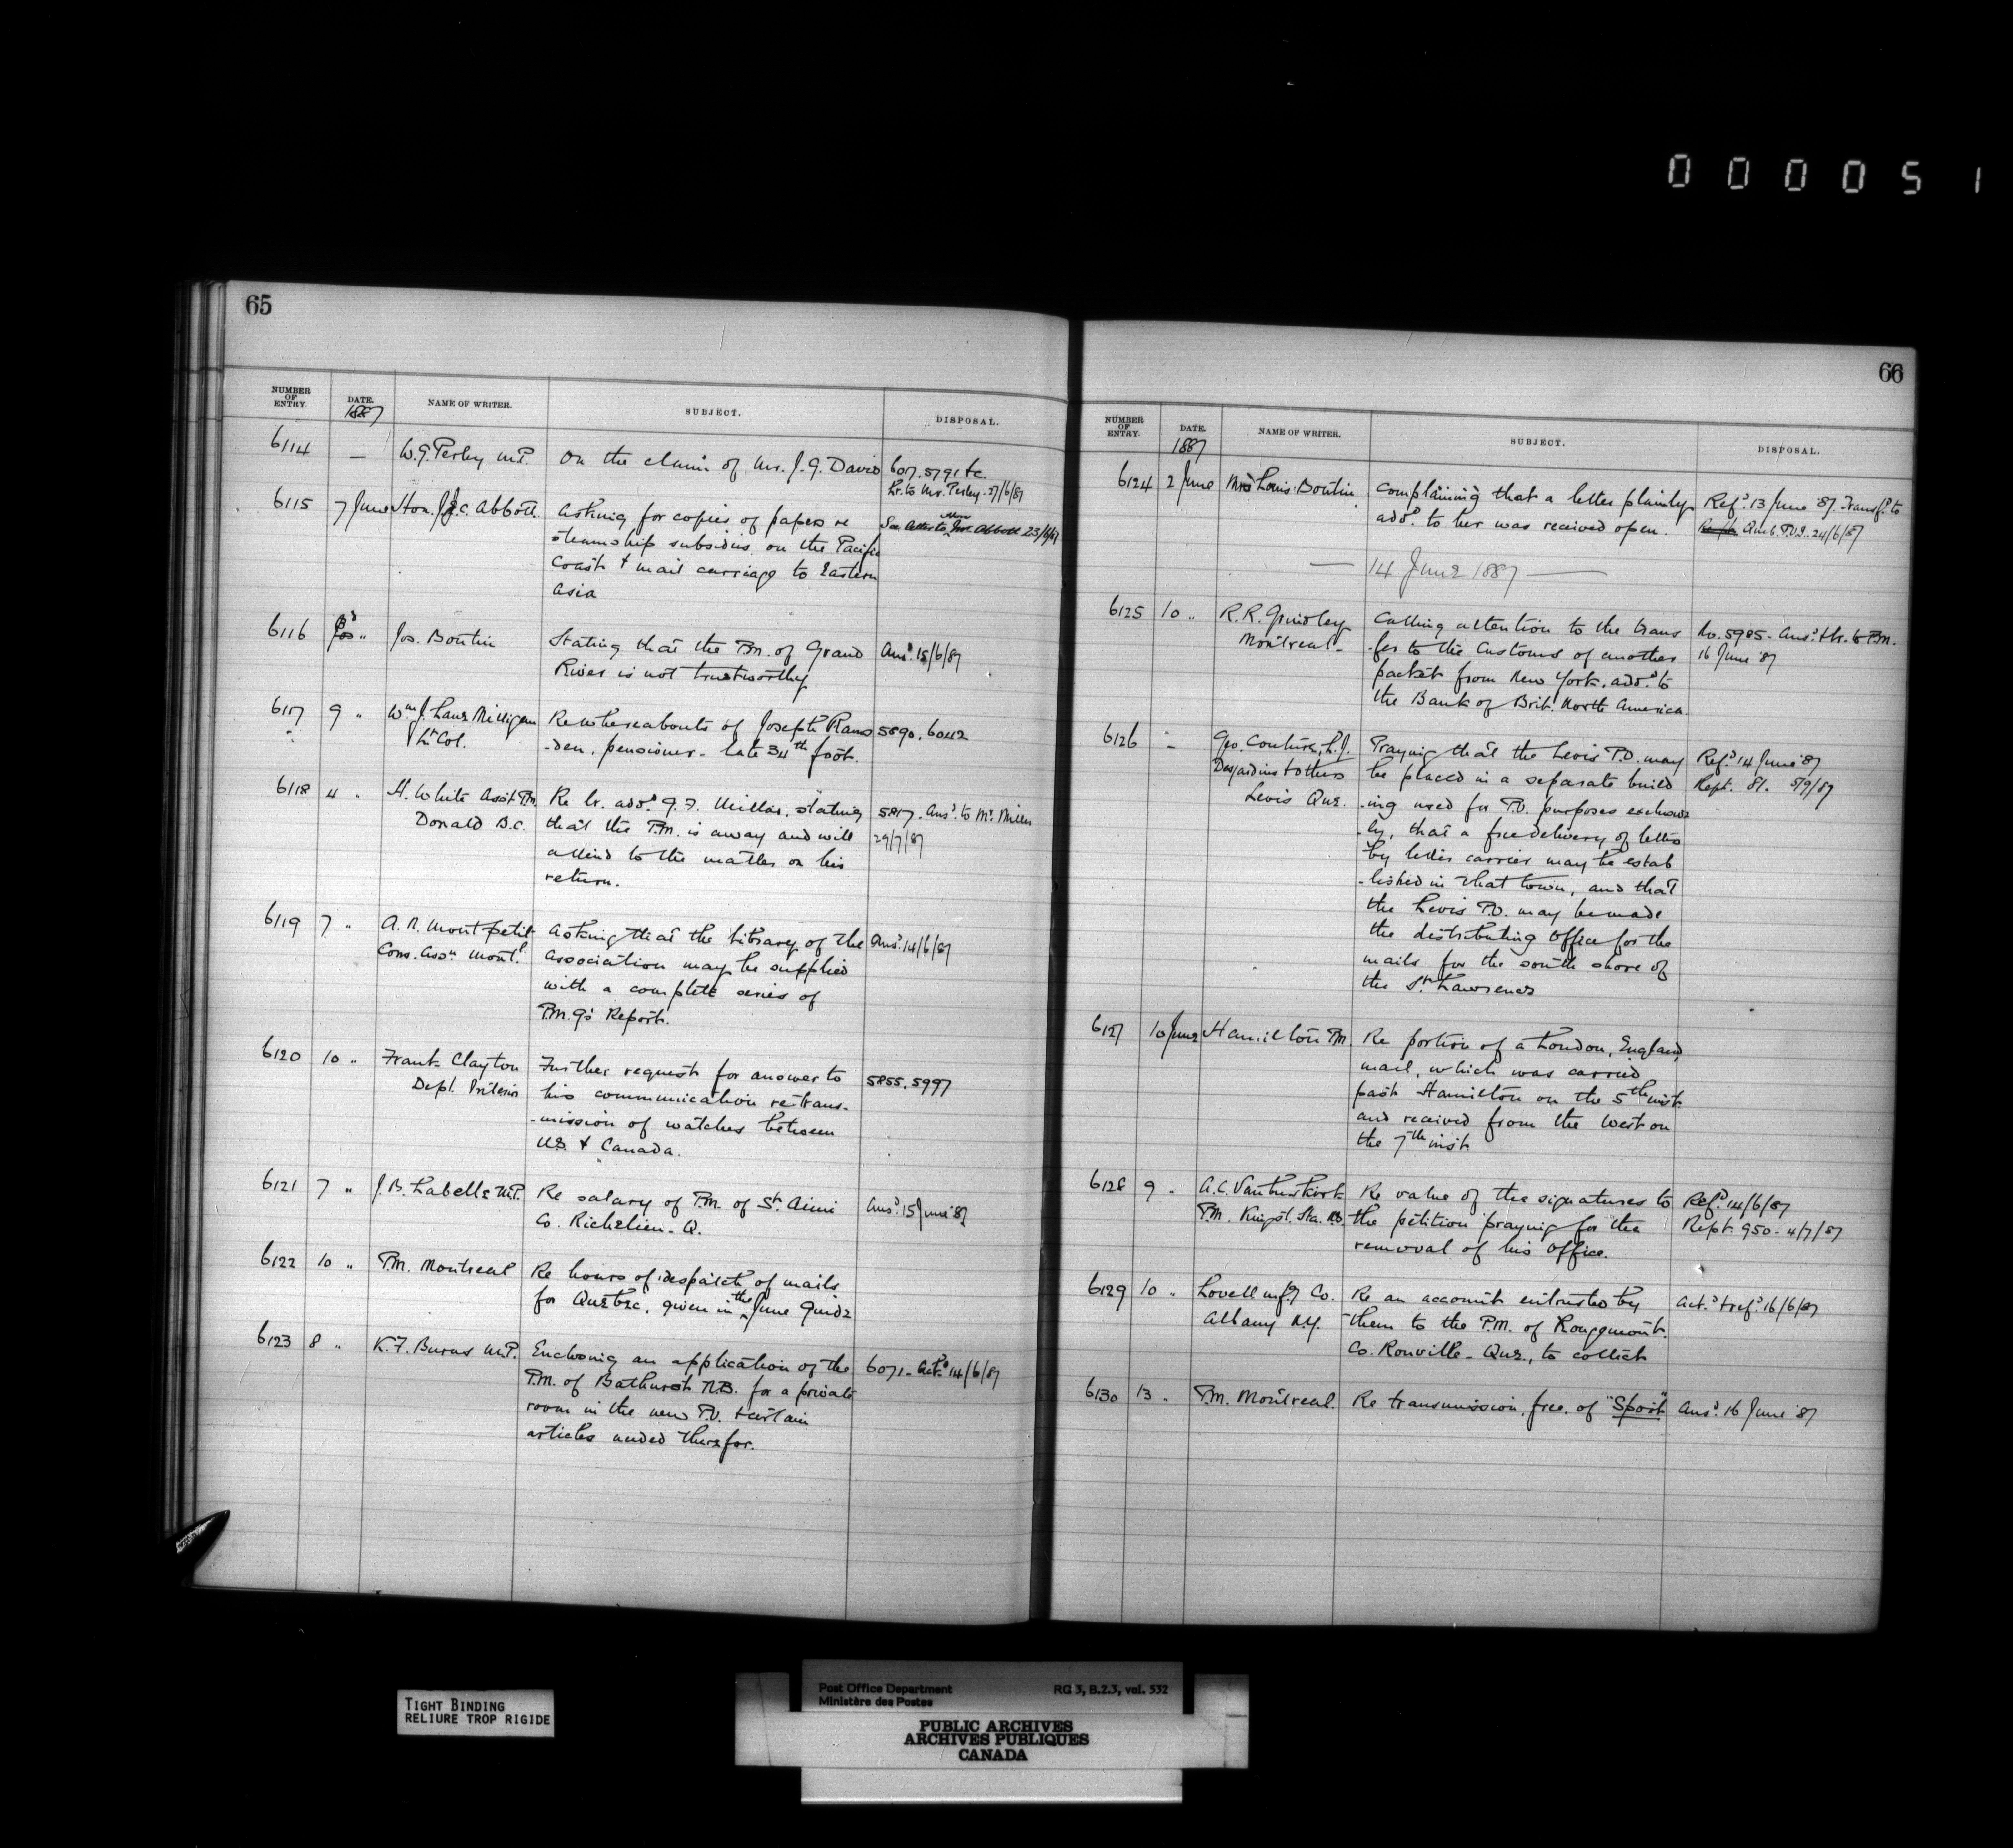 000051
65
NUMBER OF ENTRY. DATE. NAME OF WRITER. SUBJECT. DISPOSAL.
1887
6114 — W.G. Perley M.P. On the claim of Mr. J.G. Davis 6017.5791 &c.
Lr. to Mr. Perley 27/6/87
6115 7 June Hon. J.J.C. Abbott. Asking for copies of papers re
steamship subsidies on the Pacific
Coast & mail carriage to Eastern
Asia
6116 Jos. Boutin Stating that the P.M. of Grand Ansd. 15/6/87
River is not trustworthy
6117 9 " Wm. J. Lane Milligan Re whereabouts of Joseph Rams 5890, 6042
Lt. Col. -den, pensioner - late 34th foot.
6118 4 " H. White Asst. P.M. Re lr. addd. G.F. Millar, stating 5817. Ansd. to Mr. Miller
Donald B.C. that the P.M. is away and will 29/7/87
attend to the matter on his
return.
6119 7 " A.N. Montpetit Asking that the library of the Ansd. 14/6/87
Cons. Assn. Montl. Association may be supplied
with a complete series of
P.M.G's Report.
6120 10 " Frank Clayton Further request for answer to 5855, 5997
Dept. Interior his communication re trans-
-mission of watches between
U.S. & Canada.
6121 7 " J.B. Labelle M.P. Re salary of P.M. of St. Aimé Ansd. 15 June '87
Co. Richelieu - Q.
6122 10 " P.M. Montreal Re hours of despatch of mails
for Quebec, given in the June Guide
6123 8 " K.F. Burns M.P. Enclosing an application of the 6071 - Actd. 14/6/87
P.M. of Bathurst N.B. for a private
room in the new P.O. & certain
articles needed therefor.
66
NUMBER OF ENTRY. DATE. NAME OF WRITER. SUBJECT. DISPOSAL.
1887
6124 2 June Mrs Louis Boutin Complaining that a letter plainly Refd. 13 June '87. Transfd. to
addd. to her was received open. 24/6/87
— 14 June 1887 —
6125 10 " R.R. Grindley Calling attention to the trans No. 5985 - Ansd. & lr. to P.M.
Montreal - -fer to the Customs of another 16 June '87
packet from New York, addd. to
the Bank of Brit. North America.
6126 " Geo. Couture, L.J. Praying that the Levis P.O. may Refd. 14 June '87
Desjardins & others be placed in a separate build Rept. 81. 5/9/87
Levis Que. -ing used for P.O. purposes exclusive
-ly, that a free delivery of letters
by letter carrier may be estab
-lished in that town, and that
the Levis P.O. may be made
the distributing Office for the
mails for the south shore of
the St. Lawrence
6127 10 June Hamilton P.M. Re portion of a London, England,
mail, which was carried
past Hamilton on the 5th inst.
and received from the West on
the 7th inst.
6128 9 " A.C. Vanbuskirk Re value of the signatures to Refd. 14/6/87
P.M. Kingst. Sta. N.S. the petition praying for the Rept. 950 - 4/7/87
removal of his Office.
6129 10 " Lovell mfg Co. Re an account entrusted by Actd. & refd. 16/6/87
Albany N.Y. them to the P.M. of Rougemont.
Co. Rouville - Que., to collect
6130 13 " P.M. Montreal. Re transmission, free, of "Sport" Ansd. 16 June '87
TIGHT BINDING
RELIURE TROP RIGIDE
Post Office Department RG 3, B.2.3, vol. 532
Ministère des Postes
PUBLIC ARCHIVES
ARCHIVES PUBLIQUES
CANADA